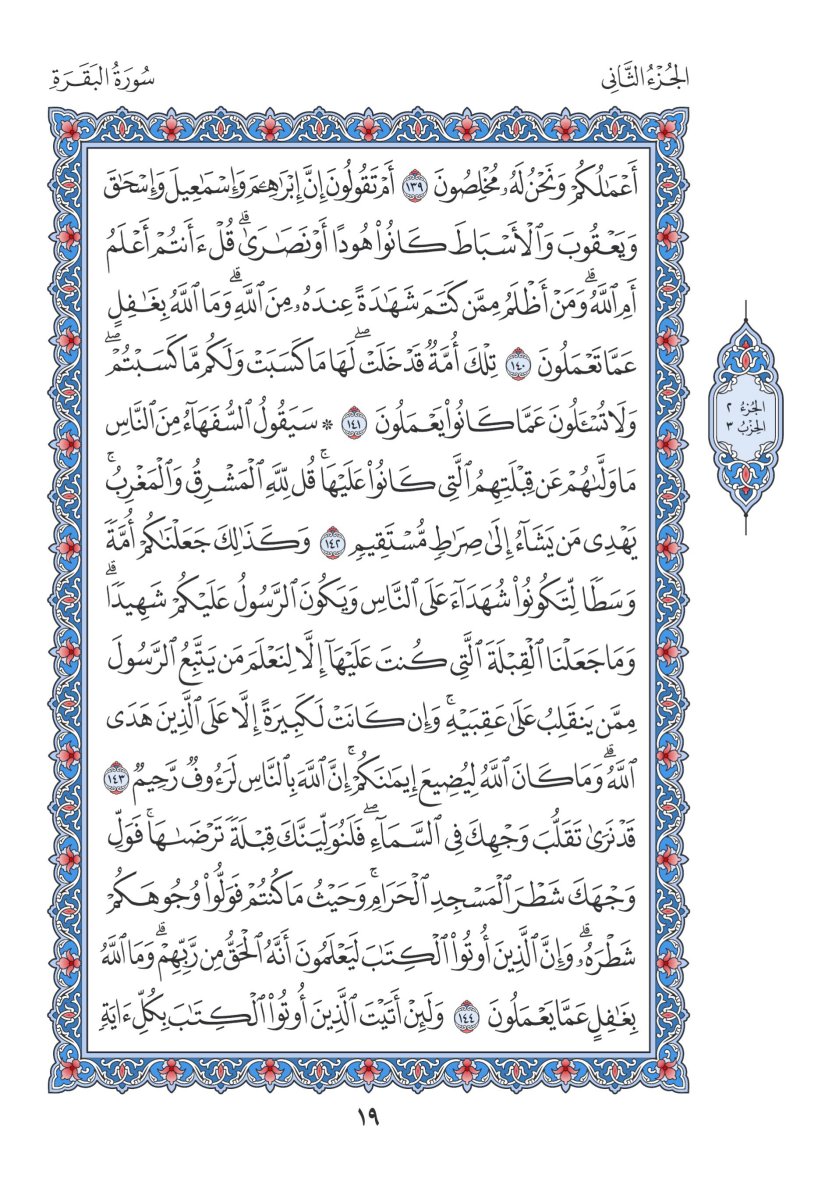 الجُزْءُ الثَّانِى
سُورَةُ البَقَرَةِ
أَعْمَٰلُكُمْ وَنَحْنُ لَهُۥ مُخْلِصُونَ ١٣٩ أَمْ تَقُولُونَ إِنَّ إِبْرَٰهِـۧمَ وَإِسْمَٰعِيلَ وَإِسْحَٰقَ
وَيَعْقُوبَ وَٱلْأَسْبَاطَ كَانُوا۟ هُودًا أَوْ نَصَٰرَىٰ ۗ قُلْ ءَأَنتُمْ أَعْلَمُ
أَمِ ٱللَّهُ ۗ وَمَنْ أَظْلَمُ مِمَّن كَتَمَ شَهَٰدَةً عِندَهُۥ مِنَ ٱللَّهِ ۗ وَمَا ٱللَّهُ بِغَٰفِلٍ
عَمَّا تَعْمَلُونَ ١٤٠ تِلْكَ أُمَّةٌ قَدْ خَلَتْ ۖ لَهَا مَا كَسَبَتْ وَلَكُم مَّا كَسَبْتُمْ ۖ
وَلَا تُسْـَٔلُونَ عَمَّا كَانُوا۟ يَعْمَلُونَ ١٤١ * سَيَقُولُ ٱلسُّفَهَآءُ مِنَ ٱلنَّاسِ
مَا وَلَّىٰهُمْ عَن قِبْلَتِهِمُ ٱلَّتِى كَانُوا۟ عَلَيْهَا ۚ قُل لِّلَّهِ ٱلْمَشْرِقُ وَٱلْمَغْرِبُ ۚ
يَهْدِى مَن يَشَآءُ إِلَىٰ صِرَٰطٍ مُّسْتَقِيمٍ ١٤٢ وَكَذَٰلِكَ جَعَلْنَٰكُمْ أُمَّةً
وَسَطًا لِّتَكُونُوا۟ شُهَدَآءَ عَلَى ٱلنَّاسِ وَيَكُونَ ٱلرَّسُولُ عَلَيْكُمْ شَهِيدًا ۗ
وَمَا جَعَلْنَا ٱلْقِبْلَةَ ٱلَّتِى كُنتَ عَلَيْهَآ إِلَّا لِنَعْلَمَ مَن يَتَّبِعُ ٱلرَّسُولَ
مِمَّن يَنقَلِبُ عَلَىٰ عَقِبَيْهِ ۚ وَإِن كَانَتْ لَكَبِيرَةً إِلَّا عَلَى ٱلَّذِينَ هَدَى
ٱللَّهُ ۗ وَمَا كَانَ ٱللَّهُ لِيُضِيعَ إِيمَٰنَكُمْ ۚ إِنَّ ٱللَّهَ بِٱلنَّاسِ لَرَءُوفٌ رَّحِيمٌ ١٤٣
قَدْ نَرَىٰ تَقَلُّبَ وَجْهِكَ فِى ٱلسَّمَآءِ ۖ فَلَنُوَلِّيَنَّكَ قِبْلَةً تَرْضَىٰهَا ۚ فَوَلِّ
وَجْهَكَ شَطْرَ ٱلْمَسْجِدِ ٱلْحَرَامِ ۚ وَحَيْثُ مَا كُنتُمْ فَوَلُّوا۟ وُجُوهَكُمْ
شَطْرَهُۥ ۗ وَإِنَّ ٱلَّذِينَ أُوتُوا۟ ٱلْكِتَٰبَ لَيَعْلَمُونَ أَنَّهُ ٱلْحَقُّ مِن رَّبِّهِمْ ۗ وَمَا ٱللَّهُ
بِغَٰفِلٍ عَمَّا يَعْمَلُونَ ١٤٤ وَلَئِنْ أَتَيْتَ ٱلَّذِينَ أُوتُوا۟ ٱلْكِتَٰبَ بِكُلِّ ءَايَةٍ
الجُزْءُ ٢
الحِزْبُ ٣
١٩